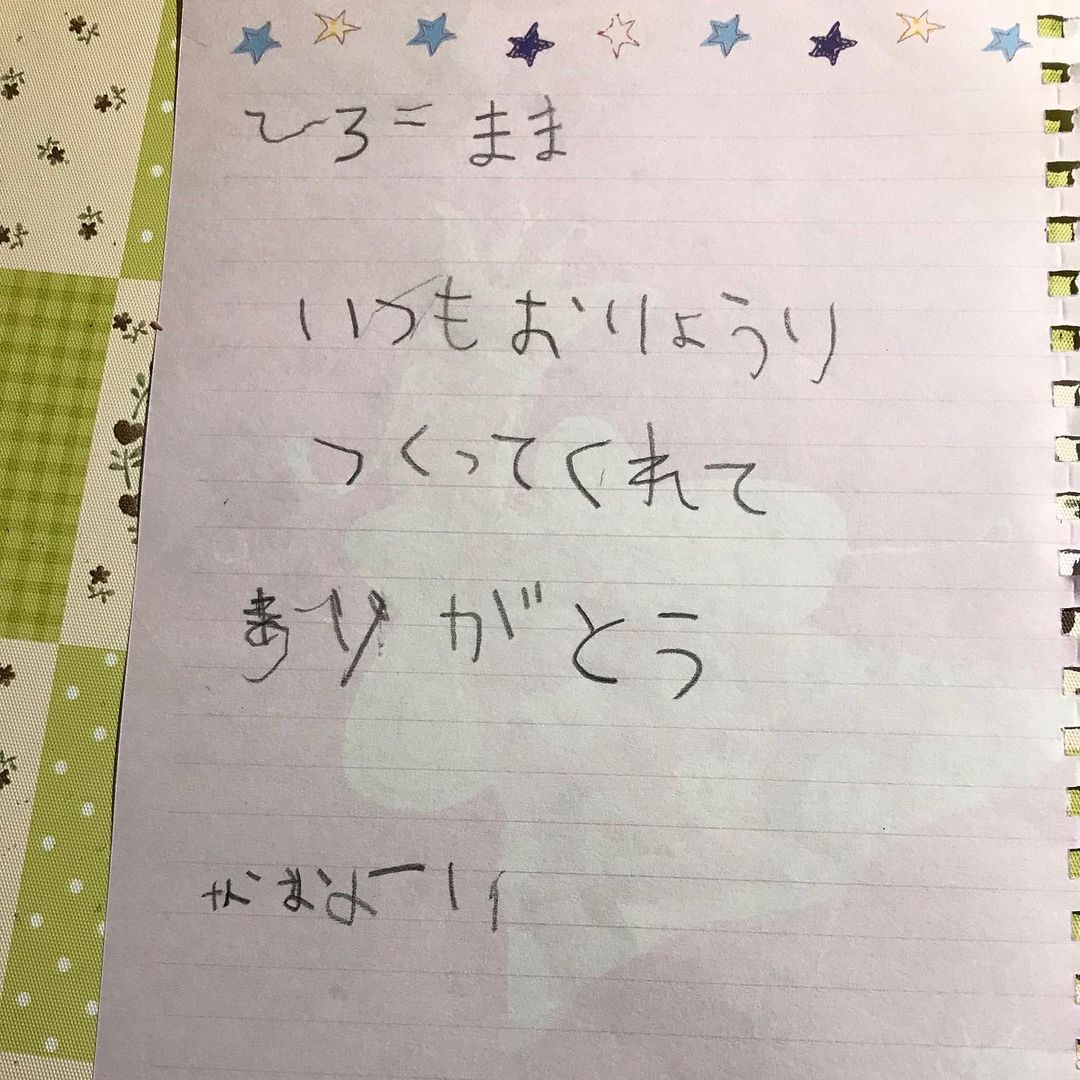 ひろこ まま
いつもおりょうり
つくってくれて
ありがとう